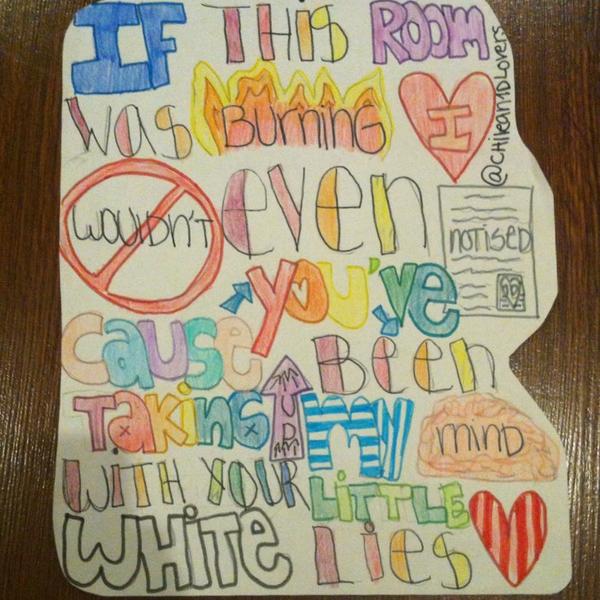 IF THIS ROOM
@CHIKEANDLOVERS
Was BURNING I
WOULDN'T even NOTISED
cause you've Been
TaKING UP MY MIND
WITH YOUR LiTTLE
WHiTe Lies